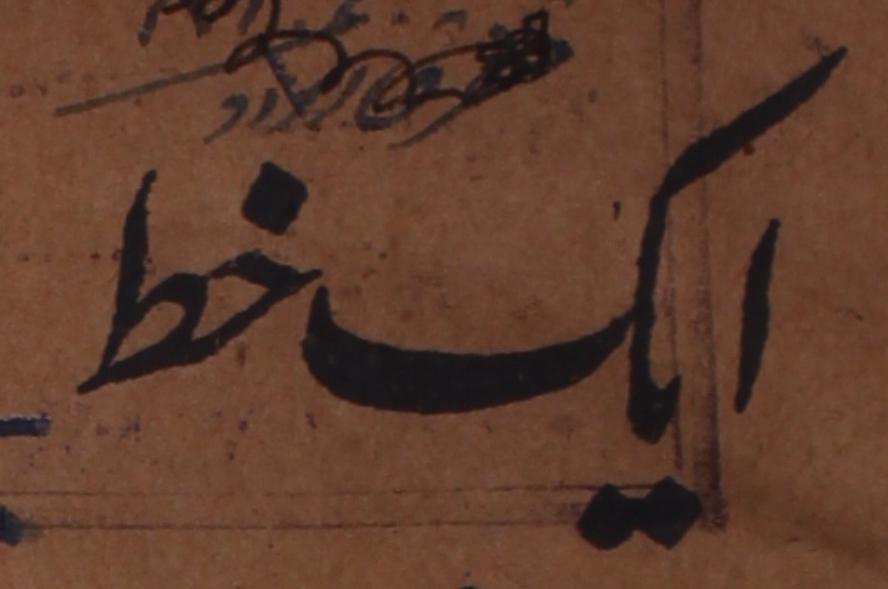 ایک خط